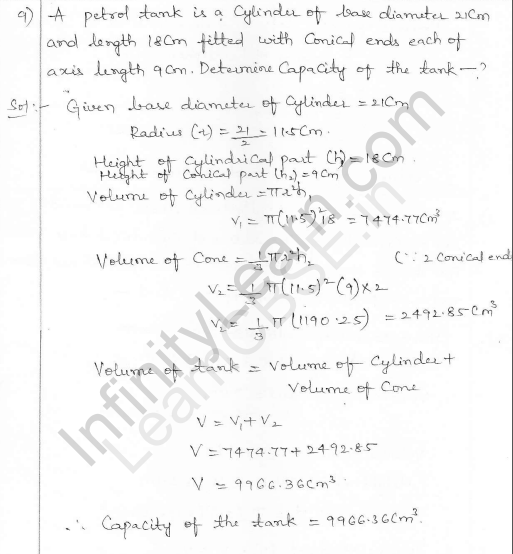 9) A petrol tank is a Cylinder of base diameter 21cm
and length 18cm fitted with Conical ends each of
axis length 9cm. Determine Capacity of the tank -?
Sol:- Given base diameter of Cylinder = 21cm
Radius (r) = 21/2 = 11.5cm.
Height of Cylindrical part (h1) = 18cm.
Height of Conical part (h2) = 9cm
Volume of Cylinder = πr²h1
V1 = π(11.5)²18 = 7474.77cm³
Volume of Cone = 1/3 πr²h2 (∵ 2 Conical end
V2 = 1/3 π(11.5)²(9)×2
V2 = 1/3 π(1190.25) = 2492.85cm³
Volume of tank = Volume of Cylinder +
Volume of Cone
V = V1 + V2
V = 7474.77 + 2492.85
V = 9966.36cm³
∴ Capacity of the tank = 9966.36cm³.
InfinityLearn.com
LearnCBSE.in